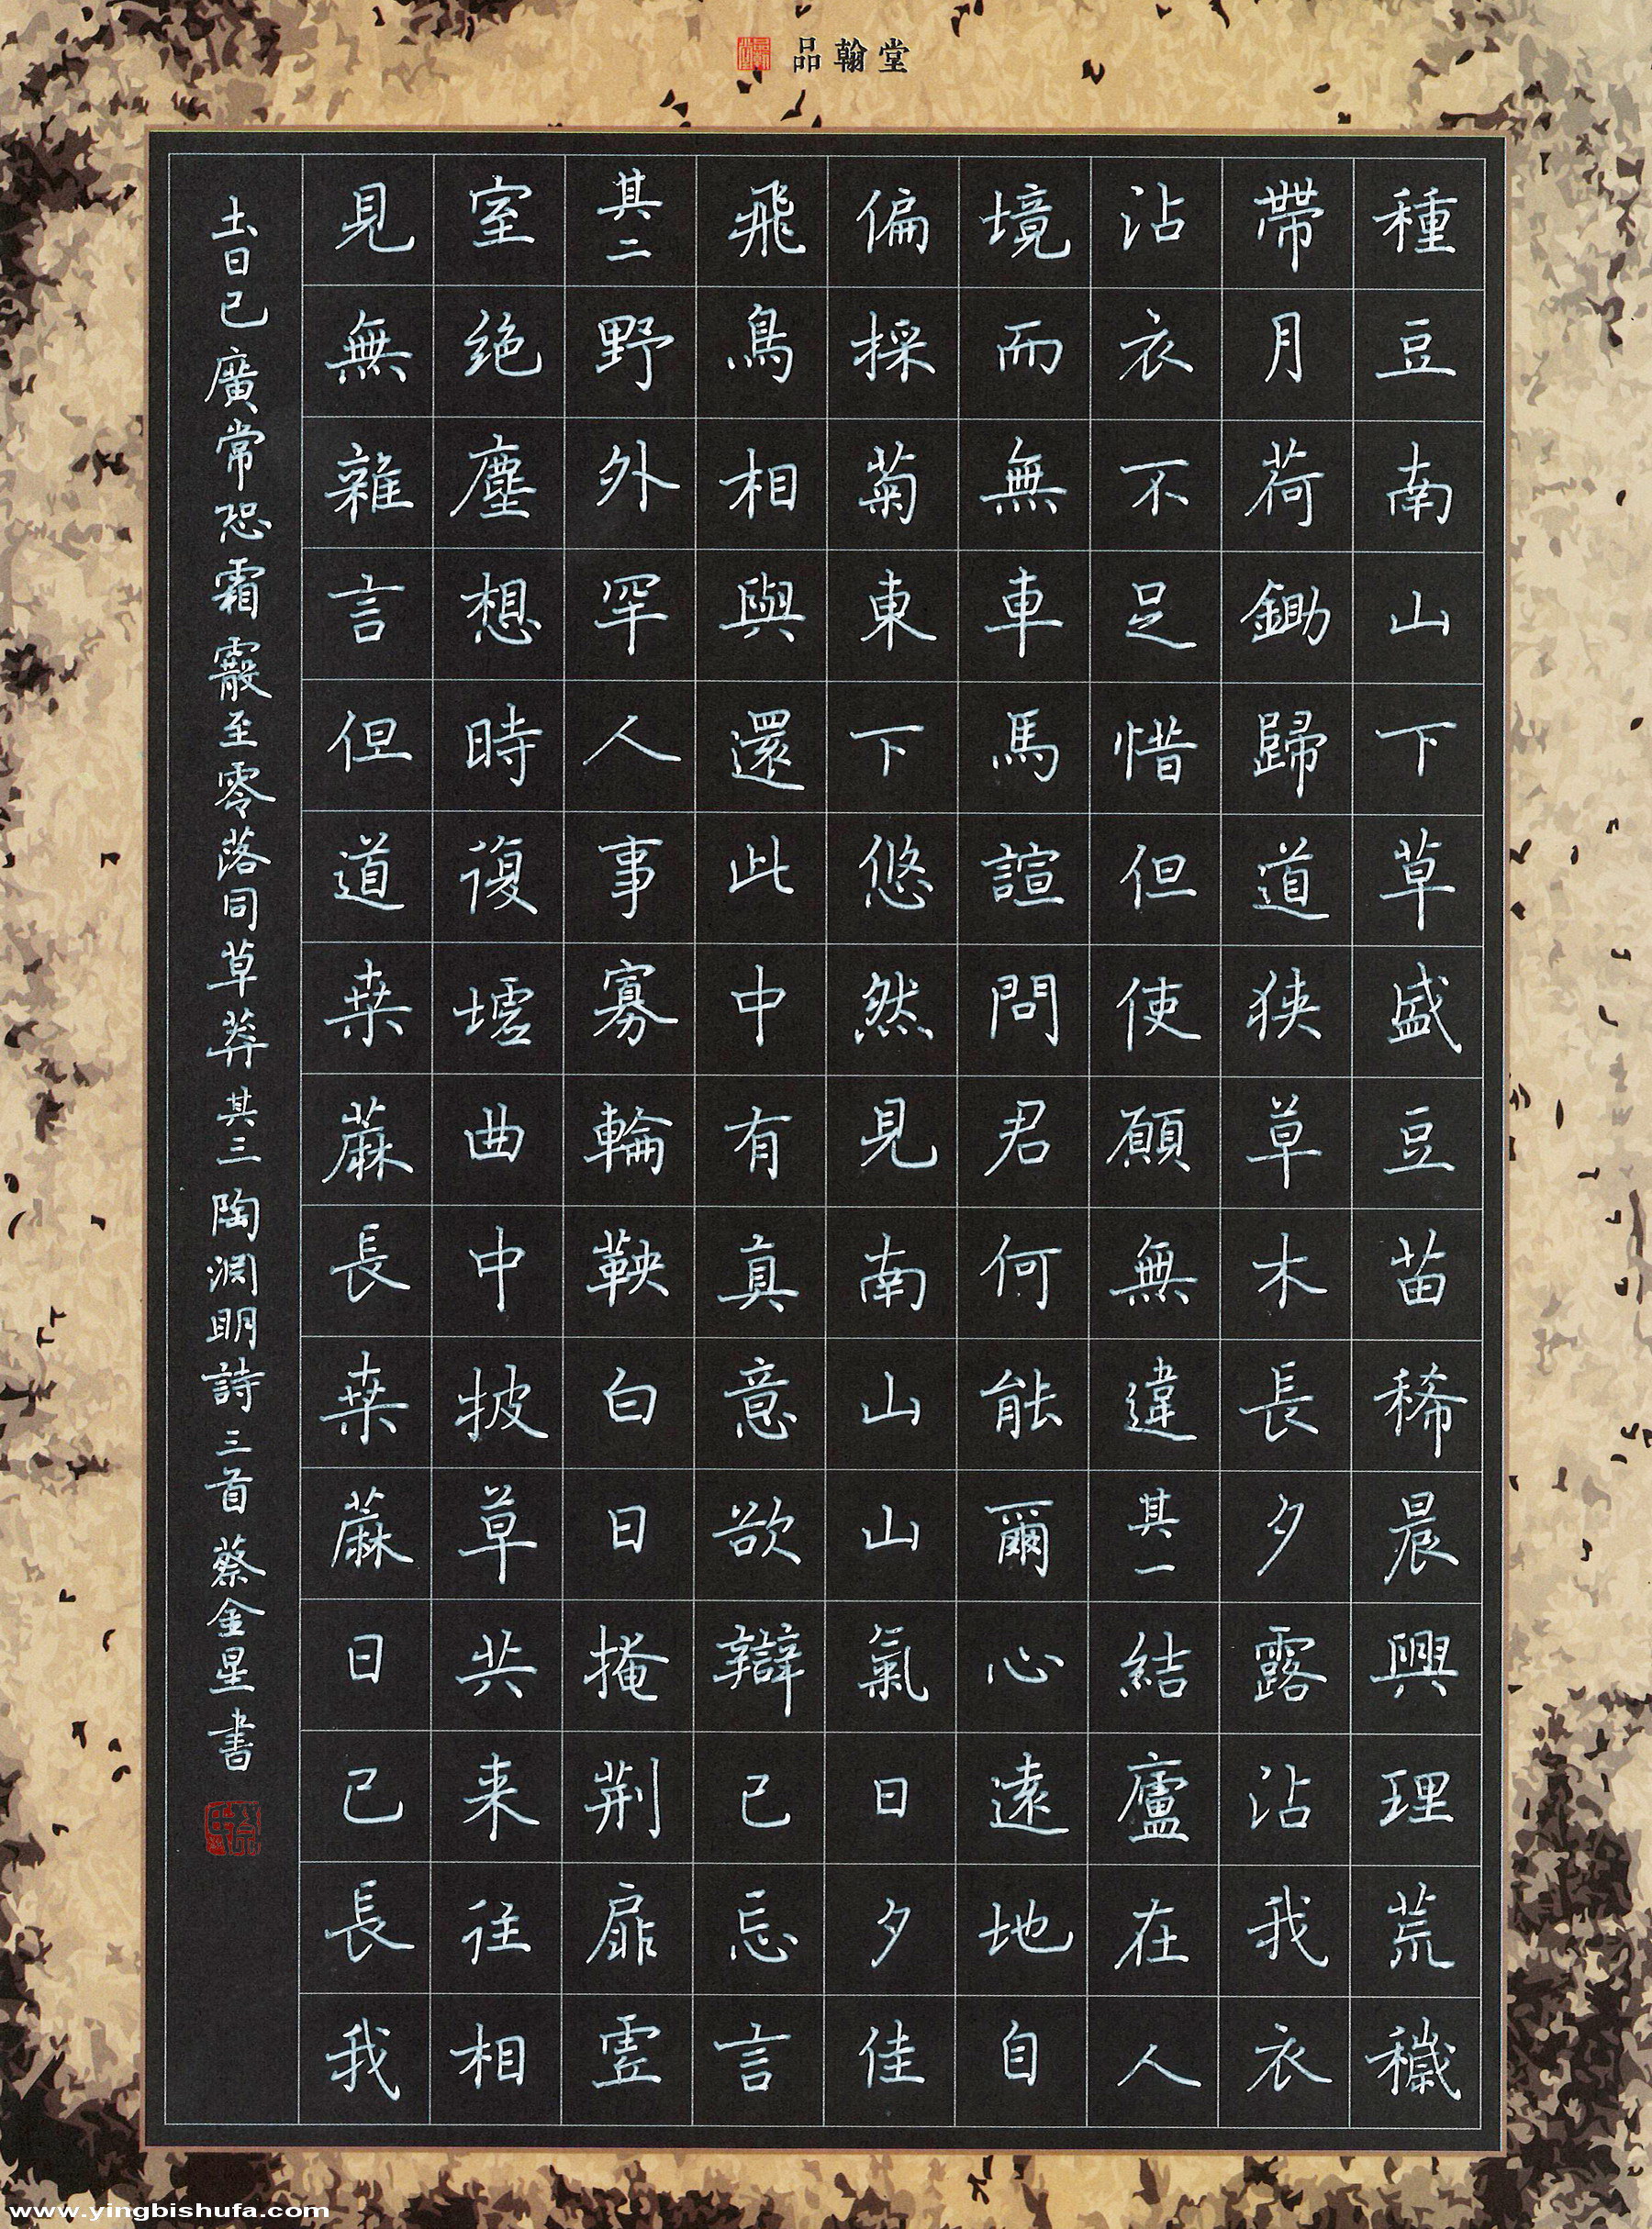 品翰堂
種豆南山下草盛豆苗稀晨興理荒穢
帶月荷鋤歸道狹草木長夕露沾我衣
沾衣不足惜但使願無違其一結廬在人
境而無車馬諠問君何能爾心遠地自
偏採菊東下悠然見南山山氣日夕佳
飛鳥相與還此中有真意欲辯已忘言
其二野外罕人事寡輪鞅白日掩荊扉虛
室絶塵想時復墟曲中披草共来往相
見無雜言但道桒蔴長桒蔴日已長我
土日已廣常恐霜霰至零落同草莽其三陶淵明詩三首蔡金星書
www.yingbishufa.com